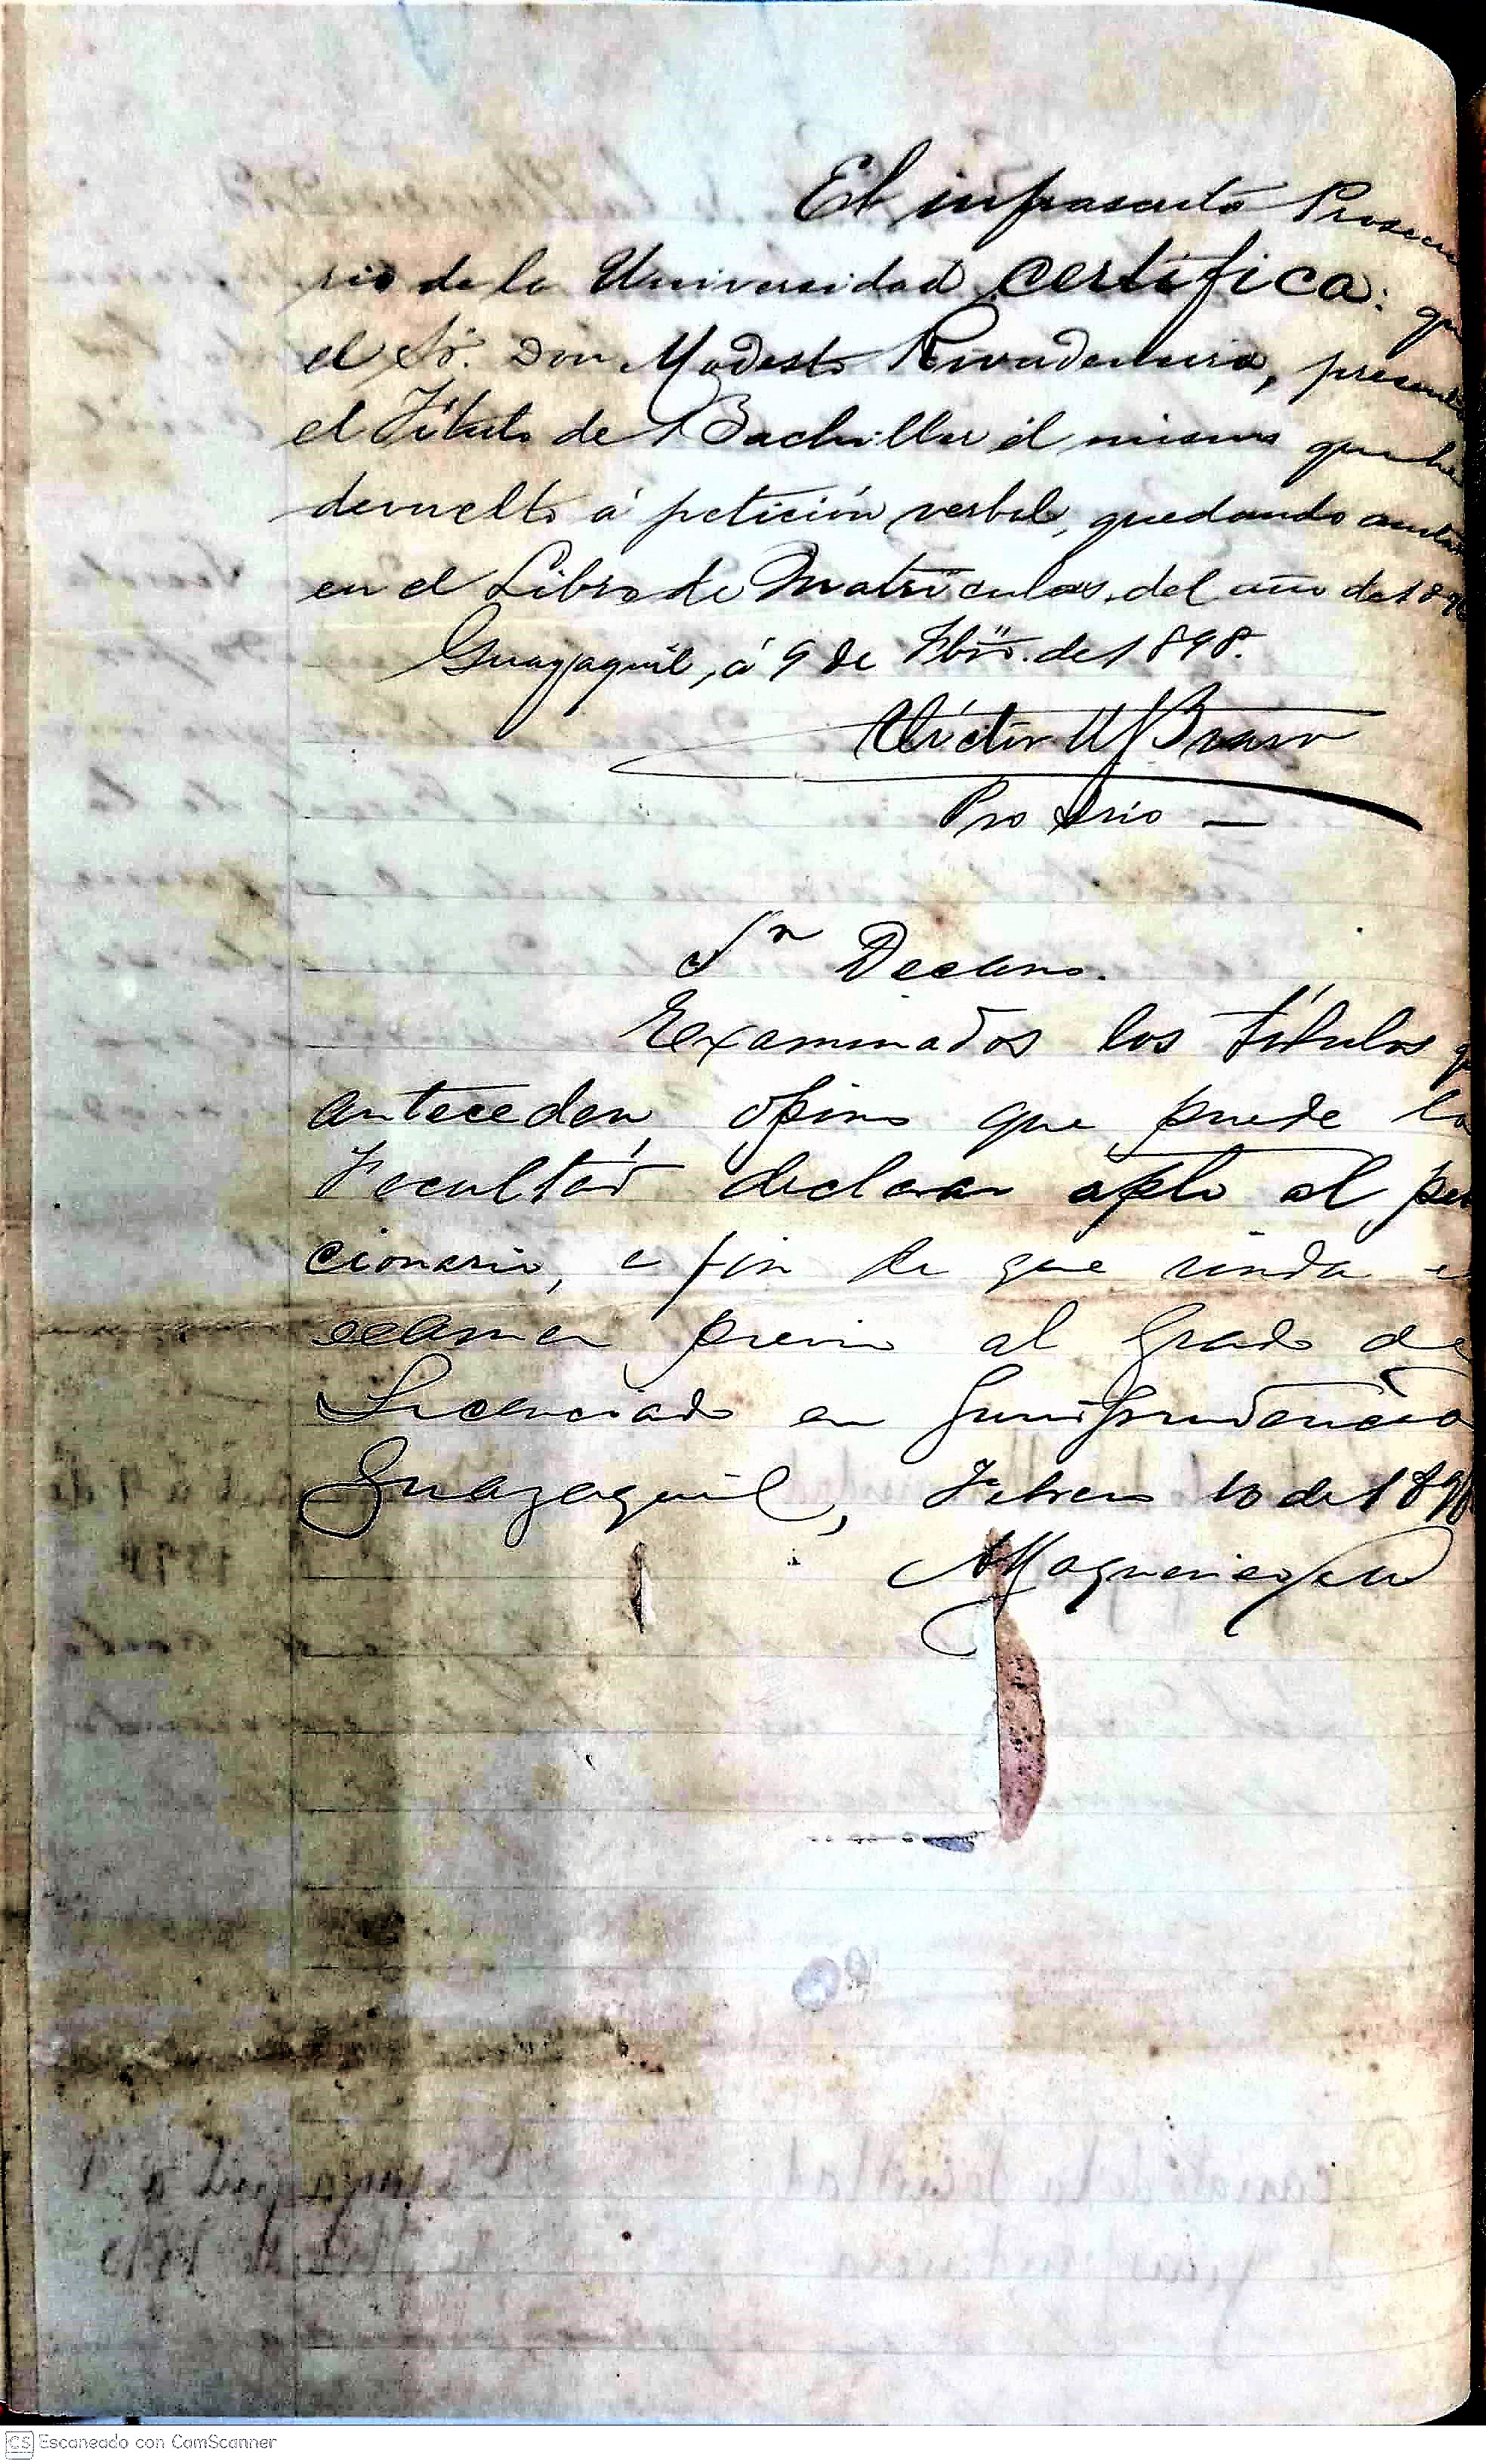 El infrascrito Prosecre
rio de la Universidad certifica: que
el Sr. Don Modesto Rivadeneira, presentó
el Título de Bachiller el mismo que he
devuelto á petición verbal, quedando anota
en el Libro de Matrículas, del año de 189
Guayaquil, á 9 de Fbro. de 1898.
Víctor M Bravo
Pro Srio —
Sr Decano.
Examinados los títulos q
anteceden, opino que puede la
Facultad declarar apto al peti
cionario, a fin de que rinda e
examen previo al grado de
Licenciado en Jurisprudencia
Guayaquil, Febrero 10 de 1898
CS Escaneado con CamScanner